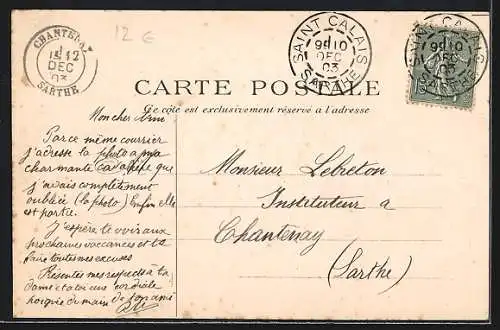 12 €
CHANTENAY
12
DEC
03
SARTHE
SAINT CALAIS
10
DEC
03
SARTHE
SAINT CALAIS
10
DEC
03
SARTHE
CARTE POSTALE
Ce côté est exclusivement réservé à l'adresse
Mon cher Ami
Par ce même courrier
j'adresse la photo a ma
charmante que
j'avais complètement
oubliée (la photo) Enfin elle
est partie.
J'espère te voir aux
prochaines vaccances et te
faire toutes mes excuses
Présentes mes respects à ta
dame et a toi une cordiale
poignée de main de ton ami
Monsieur Lebreton
Instituteur à
Chantenay
(Sarthe)